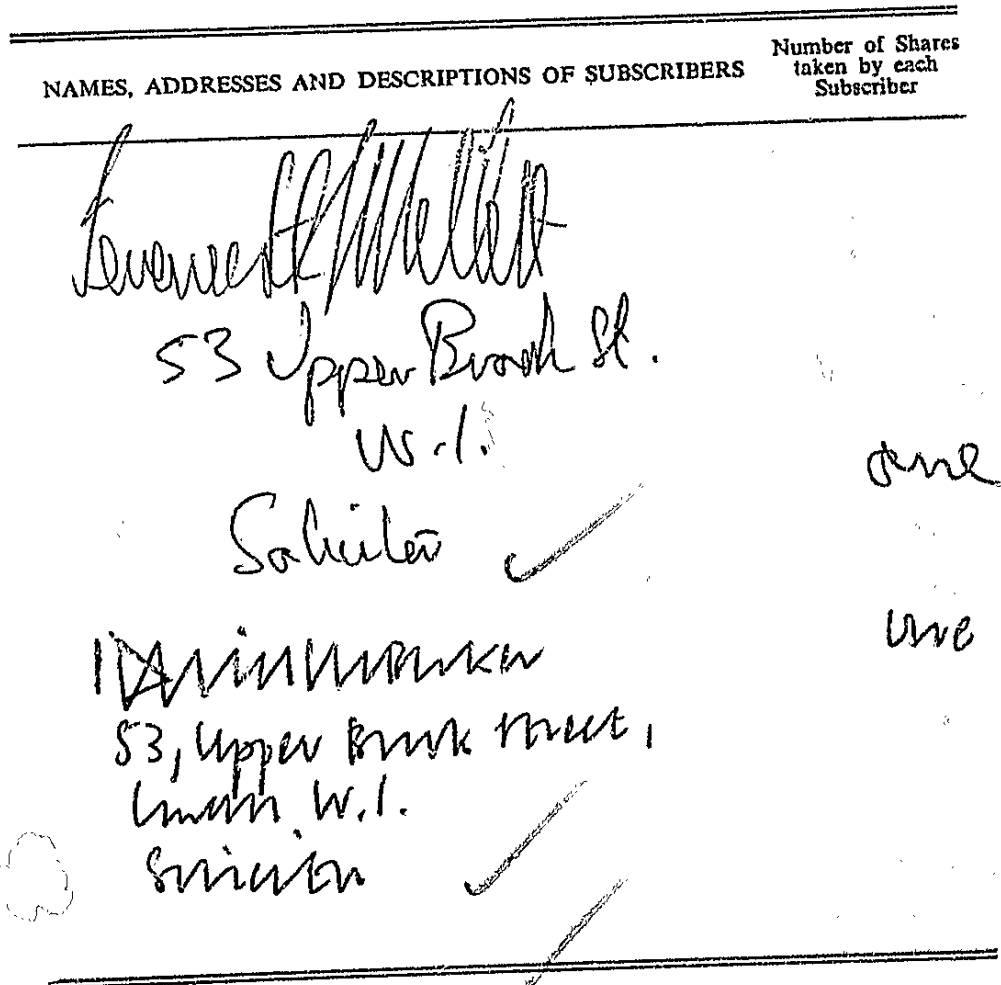 NAMES, ADDRESSES AND DESCRIPTIONS OF SUBSCRIBERS
Number of Shares
taken by each
Subscriber
53 Upper Brook St.
W.1.
one
Solicitor
one
53, Upper Brook Street,
London W.1.
Solicitor